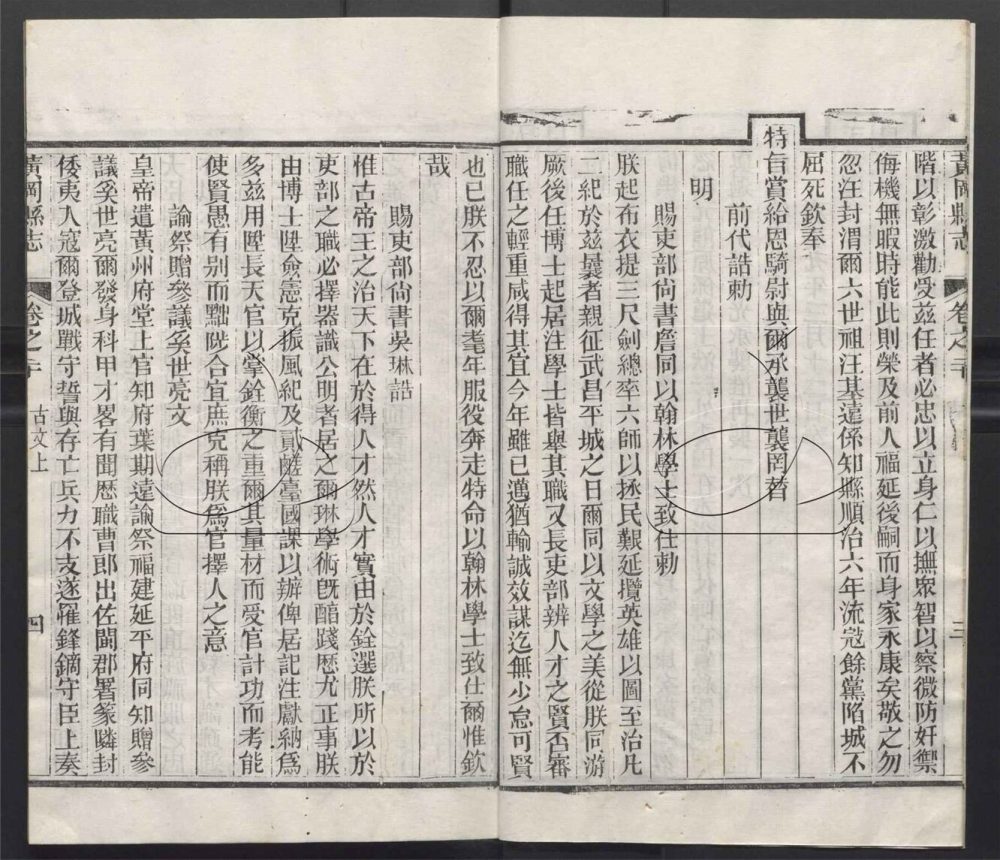 黃岡縣志 卷之二十 三
階以彰激勸受茲任者必忠以立身仁以撫衆智以察微防奸禦
侮機無暇時能此則榮及前人福延後嗣而身家永康矣敬之勿
忽汪封渭爾六世祖汪基遠係知縣順治六年流寇餘黨陷城不
屈死欽奉
特旨賞給恩騎尉與爾承襲世襲罔替
前代誥勅
明
賜吏部尙書詹同以翰林學士致仕勅
朕起布衣提三尺劍總率六師以拯民艱延攬英雄以圖至治凡
二紀於茲曩者親征武昌平城之日爾同以文學之美從朕同游
厥後任博士起居注學士皆舉其職又長吏部辨人才之賢否審
職任之輕重咸得其宜今年雖已邁猶輸誠效謀迄無少怠可賢
也已朕不忍以爾耄年服役奔走特命以翰林學士致仕爾惟欽
哉
賜吏部尙書吳琳誥
惟古帝王之治天下在於得人才然人才實由於銓選朕所以於
吏部之職必擇器識公明者居之爾琳學術旣醇踐歷尤正事朕
由博士陞僉憲克振風紀及貳鹺臺國課以辦俾居記注獻納爲
多茲用陞長天官以掌銓衡之重爾其量材而受官計功而考能
使賢愚有别而黜陟合宜庶克稱朕爲官擇人之意
諭祭贈參議奚世亮文
皇帝遣黃州府堂上官知府葉期遠諭祭福建延平府同知贈參
議奚世亮爾發身科甲才畧有聞歷職曹郎出佐閩郡署篆隣封
倭夷入寇爾登城戰守誓與存亡兵力不支遂罹鋒鏑守臣上奏
黃岡縣志 卷之二十 古文上 四